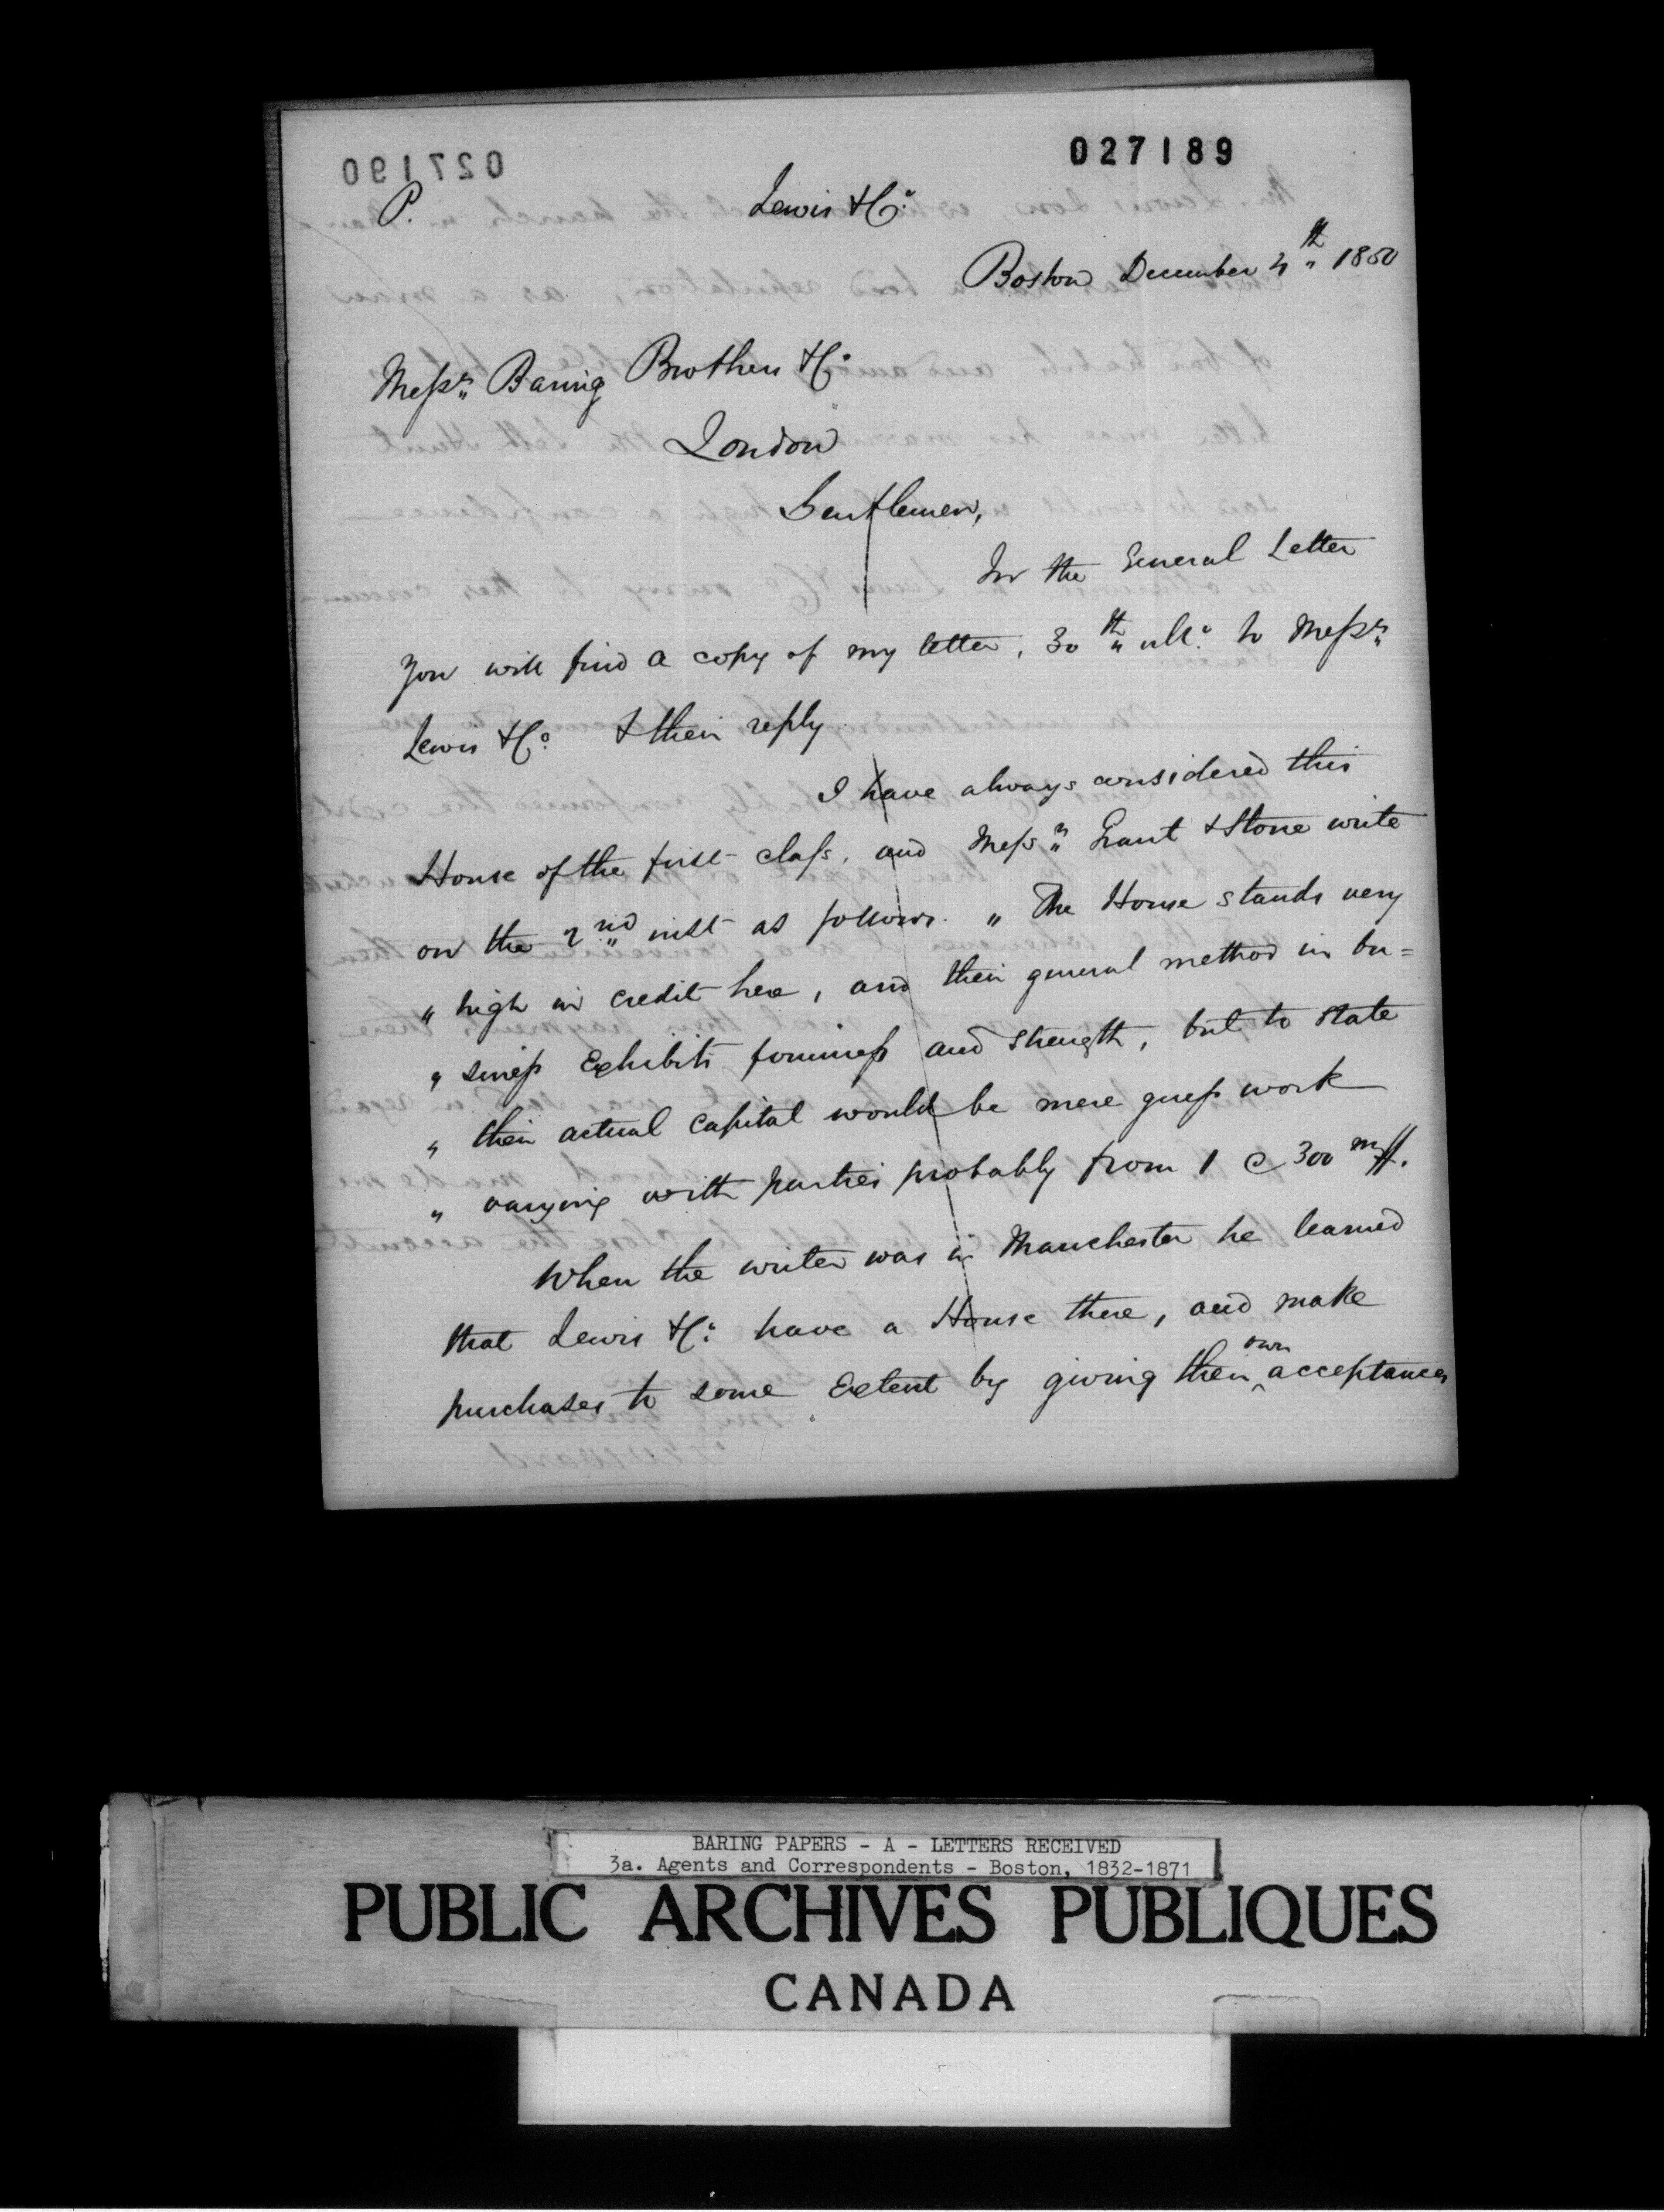 027189
027190
P.
Lewis & Co.
Boston December 4th 1850
Messrs Baring Brothers & Co
London
Gentlemen,
In the General Letter
you will find a copy of my letter, 30th ulto. to Messrs
Lewis & Co. & their reply.
I have always considered this
House of the first class, and Messrs Grant & Stone write
on the 2nd inst as follows. " The House stands very
" high in credit here, and their general method in bu=
" siness Exhibits firmness and strength, but to state
" their actual capital would be mere guess work
" varying with parties probably from 1 @ 300 m/$.
When the writer was in Manchester he learned
that Lewis & Co. have a House there, and make
purchases to some Extent by giving their own acceptances
BARING PAPERS - A - LETTERS RECEIVED
3a. Agents and Correspondents - Boston, 1832-1871
PUBLIC ARCHIVES PUBLIQUES
CANADA